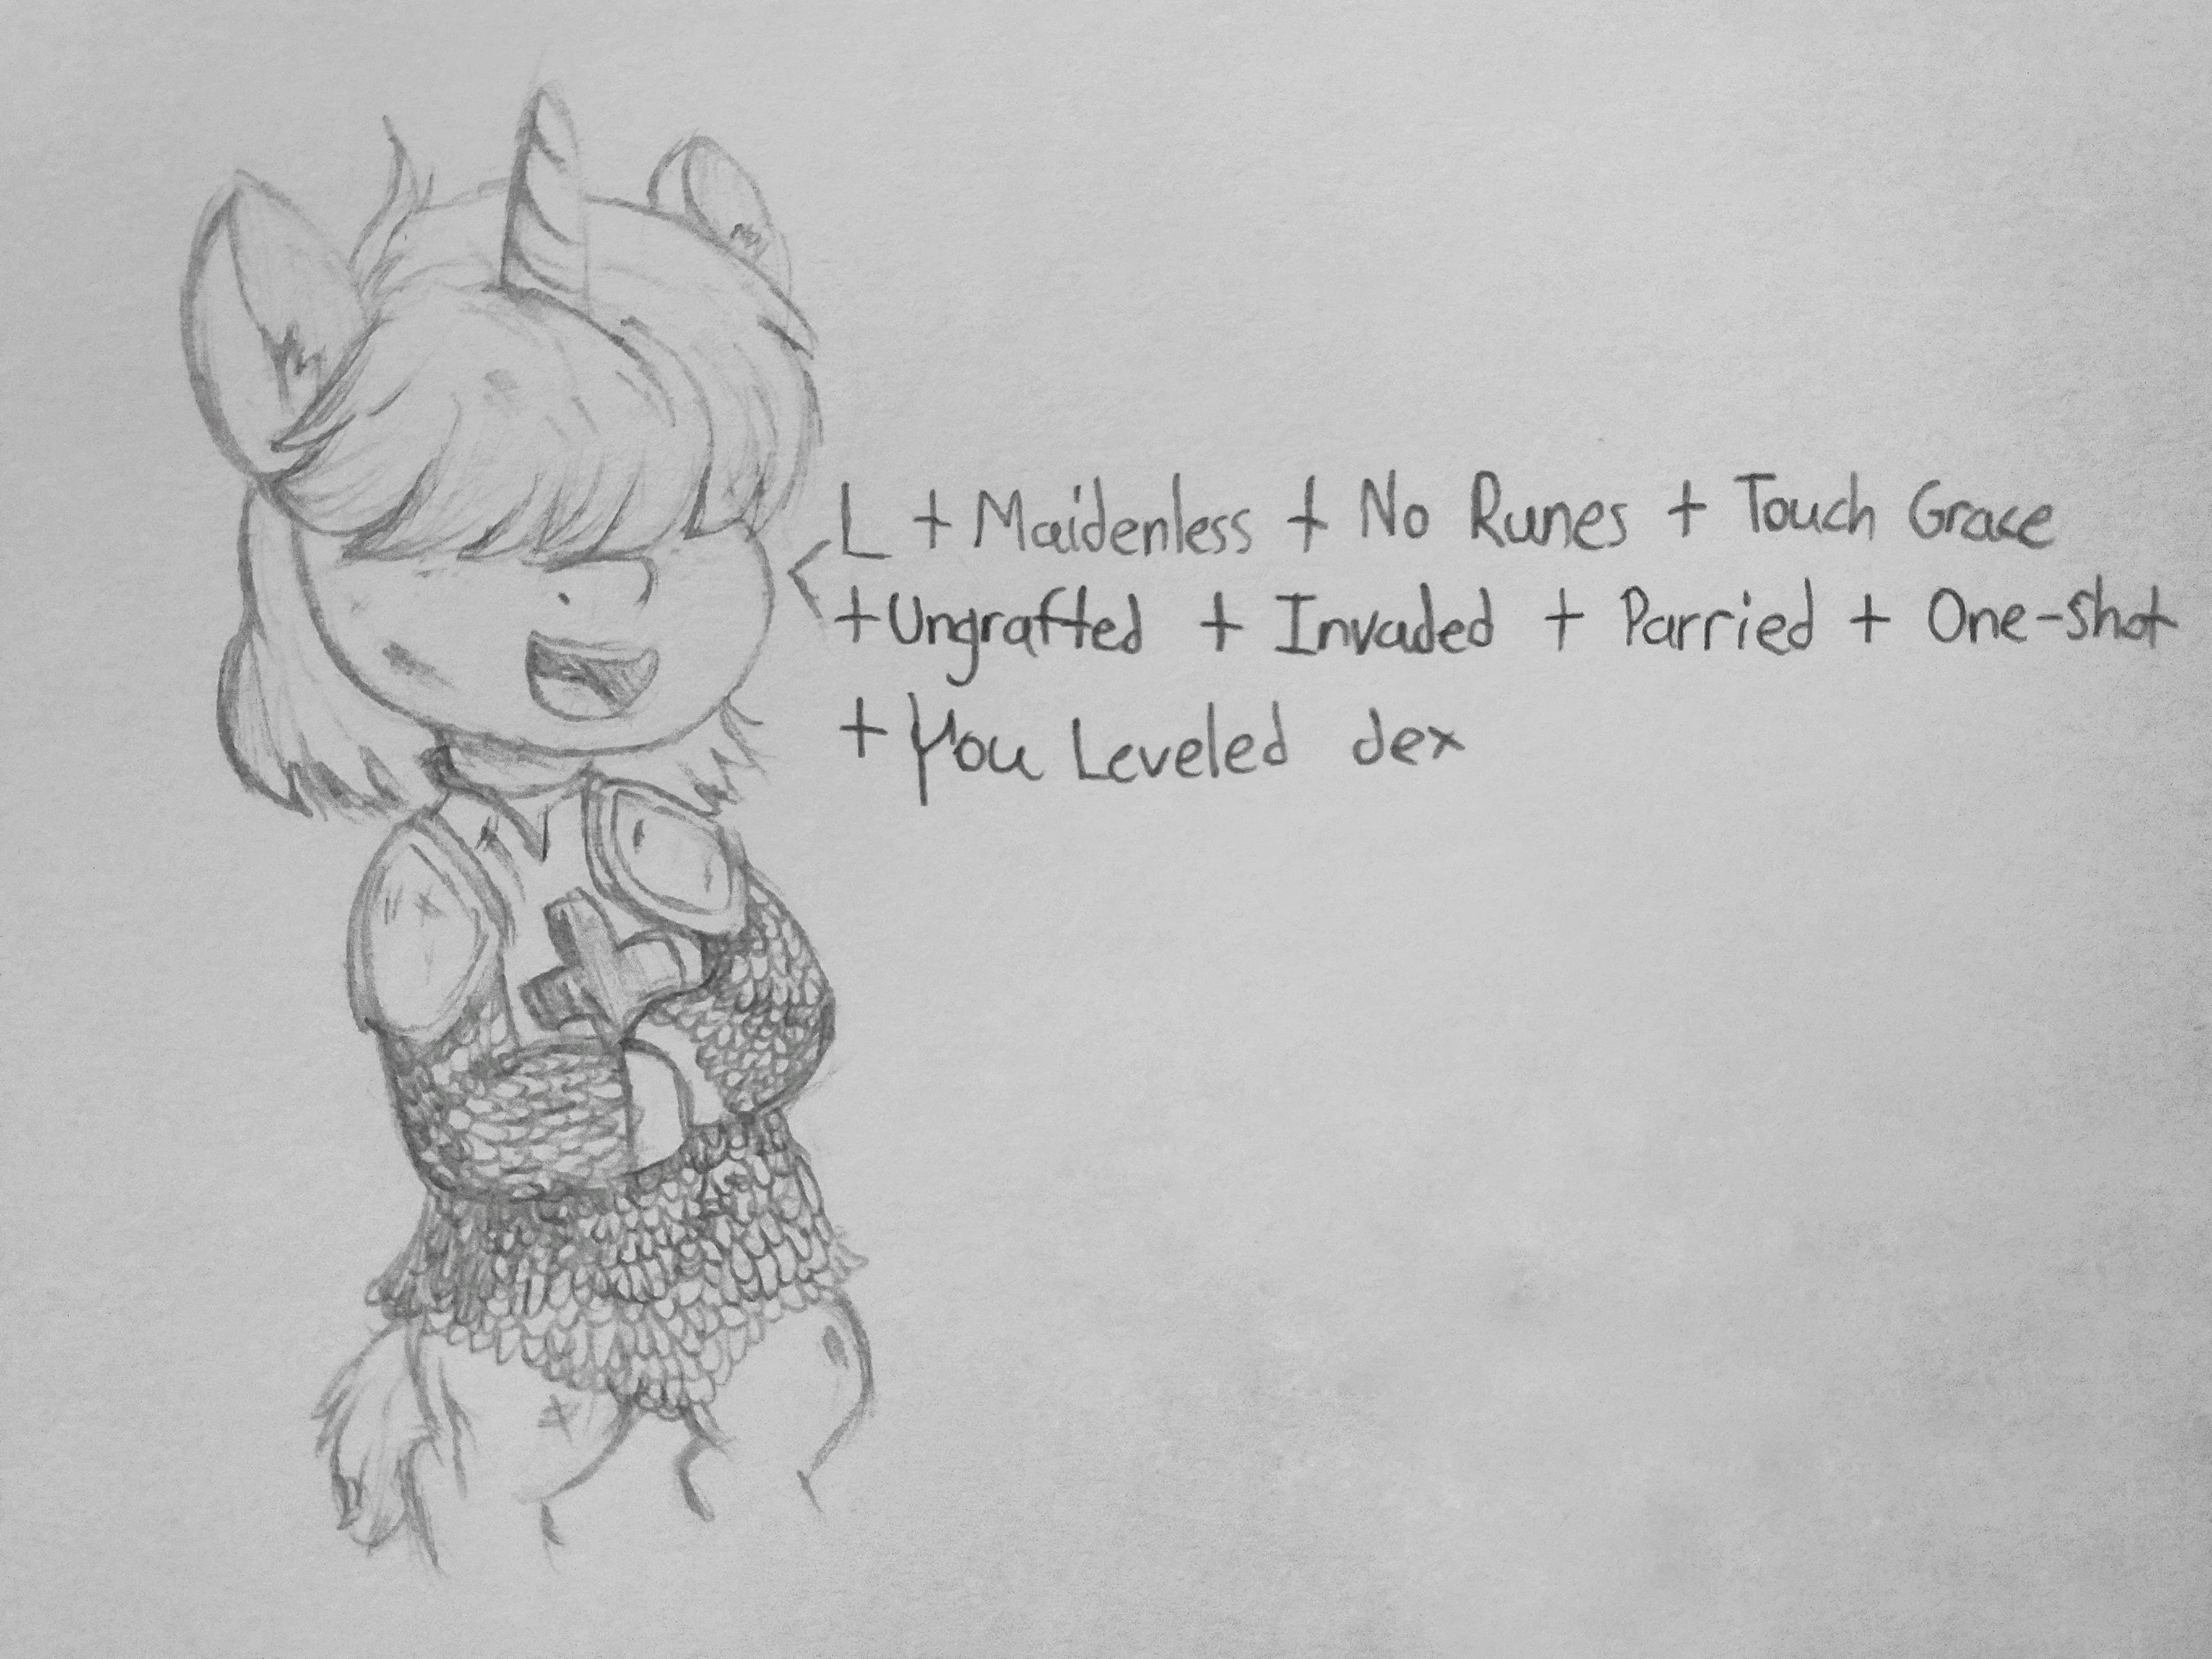 L + Maidenless + No Runes + Touch Grace
+ Ungrafted + Invaded + Parried + One-shot
+ You Leveled dex